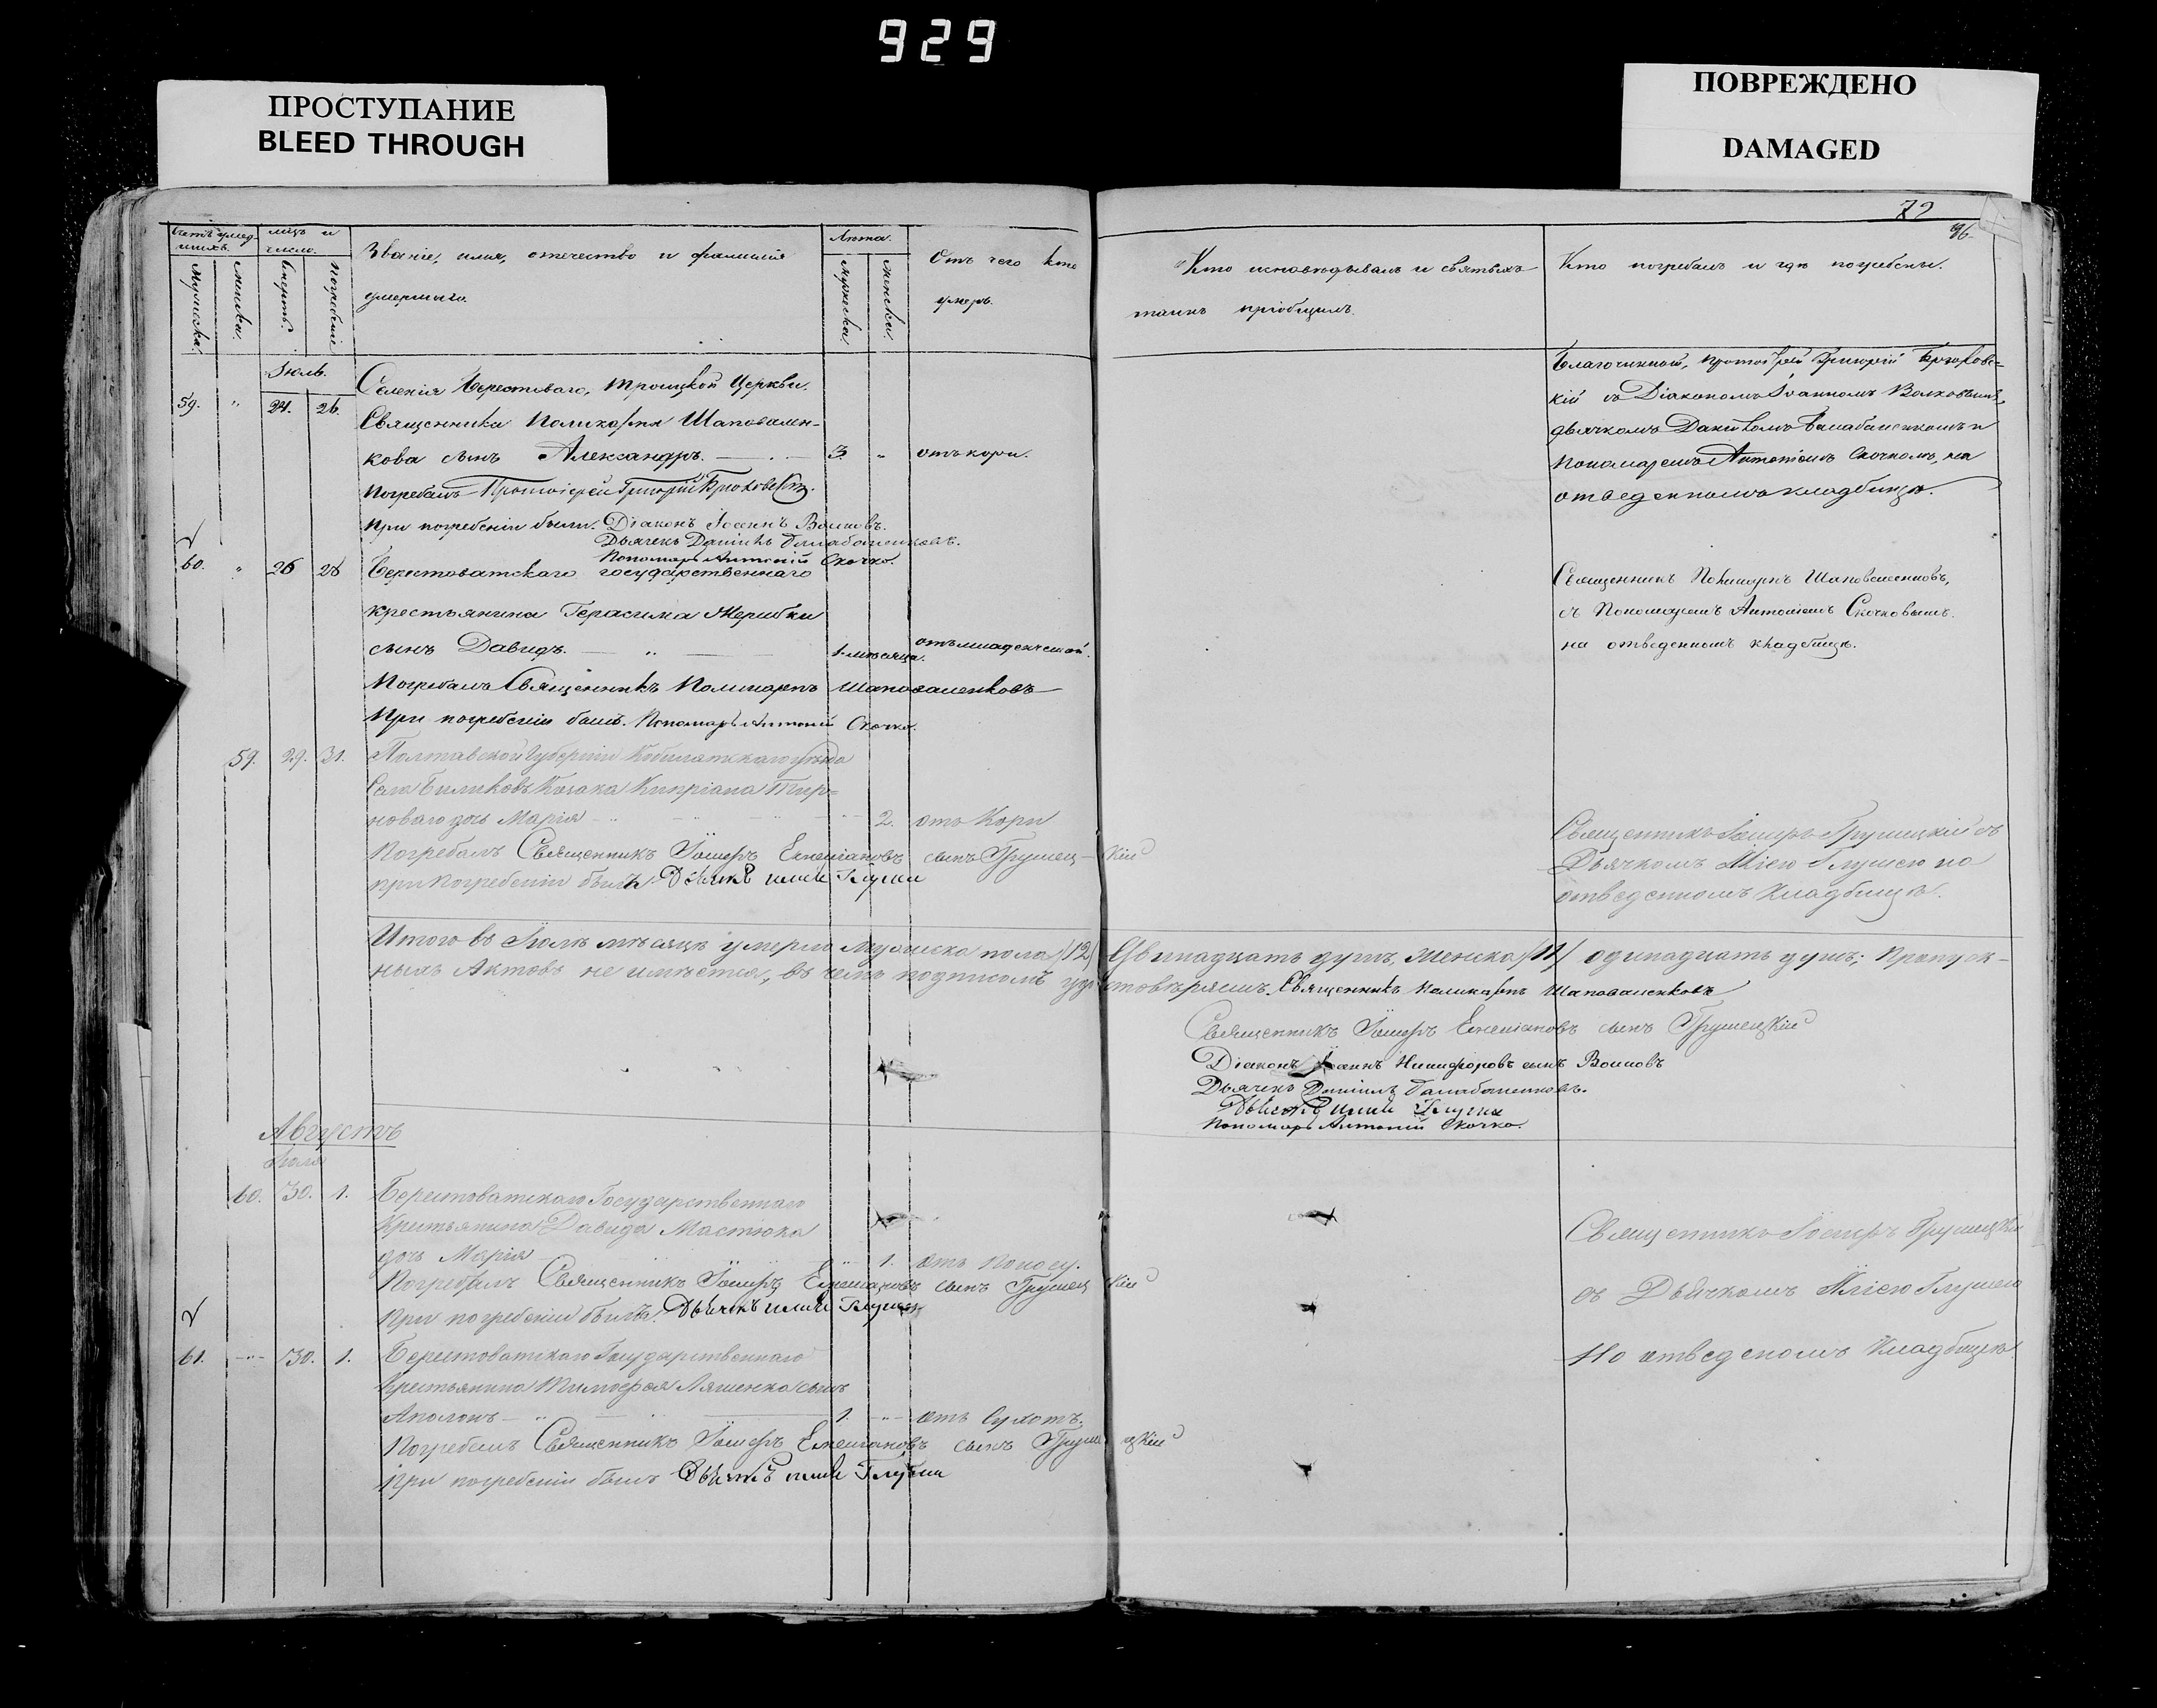 929
ПРОСТУПАНИЕ
BLEED THROUGH
ПОВРЕЖДЕНО
DAMAGED
79
96
Званіе, имя, отечество и фамилія
умершаго.
мужеска.
женска.
Смерть.
Погребеніе
Лѣта.
мужеска
женска.
Отъ чего кто
умеръ.
Кто исповѣдывалъ и святыхъ
таинъ пріобщилъ.
Кто погребалъ и гдѣ погребены.
Іюль.
59. " 24. 26.
Селенія Берестоваго, Троицкой Церкви.
Священника Поликарпа Шаповален-
кова сынъ Александръ. 3. " отъ кори.
Погребалъ Протоіерей Григорій Брюховскій.
При погребеніи были: Діаконъ Іоаннъ Волковъ.
Дьячекъ Даніилъ Балабаненковъ.
Пономарь Антоній Скочко.
Благочинный, Протоіерей Григорій Брюховс-
кій съ Діакономъ Іоанномъ Волковымъ,
дьячкомъ Даніиломъ Балабаненкомъ и
Пономаремъ Антоніемъ Скочкомъ, на
отведенномъ кладбищѣ.
60. " 26 28 Берестоватскаго государственнаго
крестьянина Герасима Жерибки
сынъ Давидъ. " 1. мѣсяца. отъ младенческой.
Погребалъ Священникъ Поликарпъ Шаповаленковъ
При погребеніи былъ: Пономарь Антоній Скочко.
Священникъ Поликарпъ Шаповаленковъ,
съ Пономаремъ Антоніемъ Скочковымъ.
на отведенномъ кладбищѣ.
59. 29. 31. Полтавской Губерніи Кобилятскаго уѣзда
Села Биликовъ Козака Кипріана Тир-
новаго дочь Марія 2. отъ Кори
Погребалъ Священникъ Іосифъ Емеліановъ сынъ Грушецкій
при погребеніи былъ Дьячекъ Илія Глушко
Священникъ Іосифъ Грушецкій съ
Дьячкомъ Иліею Глушею на
отведенномъ кладбищѣ.
Итого въ Іюлѣ мѣсяцѣ умерло мужеска пола /12/ Двинадцать душъ, Женска /11/ одинадцать душъ; Пропуск-
ныхъ Актовъ не имѣется, въ чемъ подписомъ удостовѣряемъ. Священникъ Поликарпъ Шаповаленковъ
Священникъ Іосифъ Емеліановъ сынъ Грушецкій
Діаконъ Іоаннъ Никифоровъ сынъ Волковъ
Дьячекъ Даніилъ Балабаненковъ.
Дьячекъ Илія Глушко
Пономарь Антоній Скочко.
Августъ
Іюля
60. 30. 1. Берестоватскаго Государственнаго
Крестьянина Давида Мастюка
дочь Марія " 1. отъ Поносу.
Погребалъ Священникъ Іосифъ Емеліановъ сынъ Грушецкій
При погребеніи былъ: Дьячекъ Илія Глушко
Священникъ Іосифъ Грушецкій
съ Дьячкомъ Иліею Глушею
На отведеномъ Кладбищѣ
61. " 30. 1. Берестоватскаго Государственнаго
Крестьянина Тимофея Ляшенка сынъ
Аполонъ " 1. " отъ Сухотъ.
Погребалъ Священникъ Іосифъ Емеліановъ сынъ Грушецкій
При погребеніи былъ Дьячекъ Илія Глушко